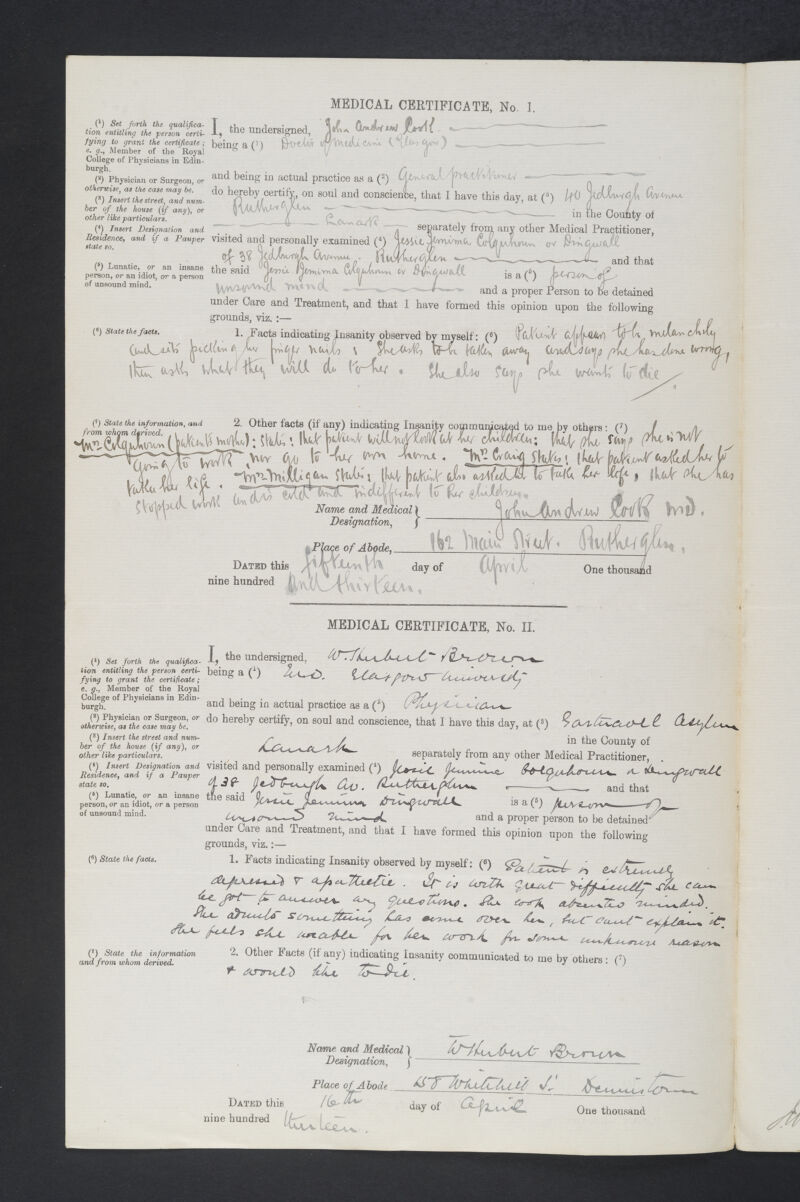 MEDICAL CERTIFICATE, No. I.
(1) Set forth the qualifica-
tion entitling the person certi-
fying to grant the certificate;
e. g., Member of the Royal
College of Physicians in Edin-
burgh.
(2) Physician or Surgeon, or
otherwise, as the case may be.
(3) Insert the street, and num-
ber of the house (if any), or
other like particulars.
(4) Insert Designation and
Residence, and if a Pauper
state so.
(5) Lunatic, or an insane
person, or an idiot, or a person
of unsound mind.
I, the undersigned, John Andrew Cook
being a (1) Doctor of medicine (Glasgow)
and being in actual practice as a (2) General practitioner
do hereby certify, on soul and conscience, that I have this day, at (3) 40 Jedburgh Avenue
Rutherglen in the County of
Lanark separately from any other Medical Practitioner,
visited and personally examined (4) Jessie Jemima Colquhoun or Dingwall
of 38 Jedburgh Avenue. Rutherglen and that
the said Jessie Jemima Colquhoun or Dingwall is a (5) person of
unsound mind and a proper Person to be detained
under Care and Treatment, and that I have formed this opinion upon the following
grounds, viz. :—
(6) State the facts.
1. Facts indicating Insanity observed by myself: (6) Patient appears to be melancholy
and sits picking her finger nails; She asks to be taken away and says she has done wrong,
then asks what they will do to her. She also says she wants to die
(7) State the information, and
from whom derived.
2. Other facts (if any) indicating Insanity communicated to me by others: (7)
Mrs Colquhoun (patient's mother): states: that patient will not look at her children: that she says she is not
going to work, nor go to her own home. Mrs Craig states: that patient asked her to
take her life. Mrs Milligan states; that patient also asked her to take her life, that she has
stopped work and is cold and indifferent to her children.
Name and Medical Designation, John Andrew Cook M.D.
Place of Abode, 162 Main Street. Rutherglen.
DATED this fifteenth day of April One thousand
nine hundred and thirteen.
MEDICAL CERTIFICATE, No. II.
(1) Set forth the qualifica-
tion entitling the person certi-
fying to grant the certificate;
e. g., Member of the Royal
College of Physicians in Edin-
burgh.
(2) Physician or Surgeon, or
otherwise, as the case may be.
(3) Insert the street and num-
ber of the house (if any), or
other like particulars.
(4) Insert Designation and
Residence, and if a Pauper
state so.
(5) Lunatic, or an insane
person, or an idiot, or a person
of unsound mind.
I, the undersigned, W. Herbert Brown
being a (1) M.D. Glasgow University
and being in actual practice as a (2) Physician
do hereby certify, on soul and conscience, that I have this day, at (3) Gartnavel Asylum
in the County of
Lanark separately from any other Medical Practitioner,
visited and personally examined (4) Jessie Jemima Colquhoun or Dingwall
of 38 Jedburgh Av. Rutherglen and that
the said Jessie Jemima Dingwall is a (5) person of
unsound mind and a proper person to be detained
under Care and Treatment, and that I have formed this opinion upon the following
grounds, viz. :—
(6) State the facts.
1. Facts indicating Insanity observed by myself: (6) Patient is extremely
depressed & apathetic. It is with great difficulty she can
be got to answer any questions. She looks absent minded.
She admits something has come over her, but cant explain it.
She feels she unable for her work for some unknown reason
(7) State the information
and from whom derived.
2. Other Facts (if any) indicating Insanity communicated to me by others: (7)
& would like to die.
Name and Medical Designation, W Herbert Brown
Place of Abode 158 Whitehill St. Dennistoun
DATED this 16th day of April One thousand
nine hundred thirteen.